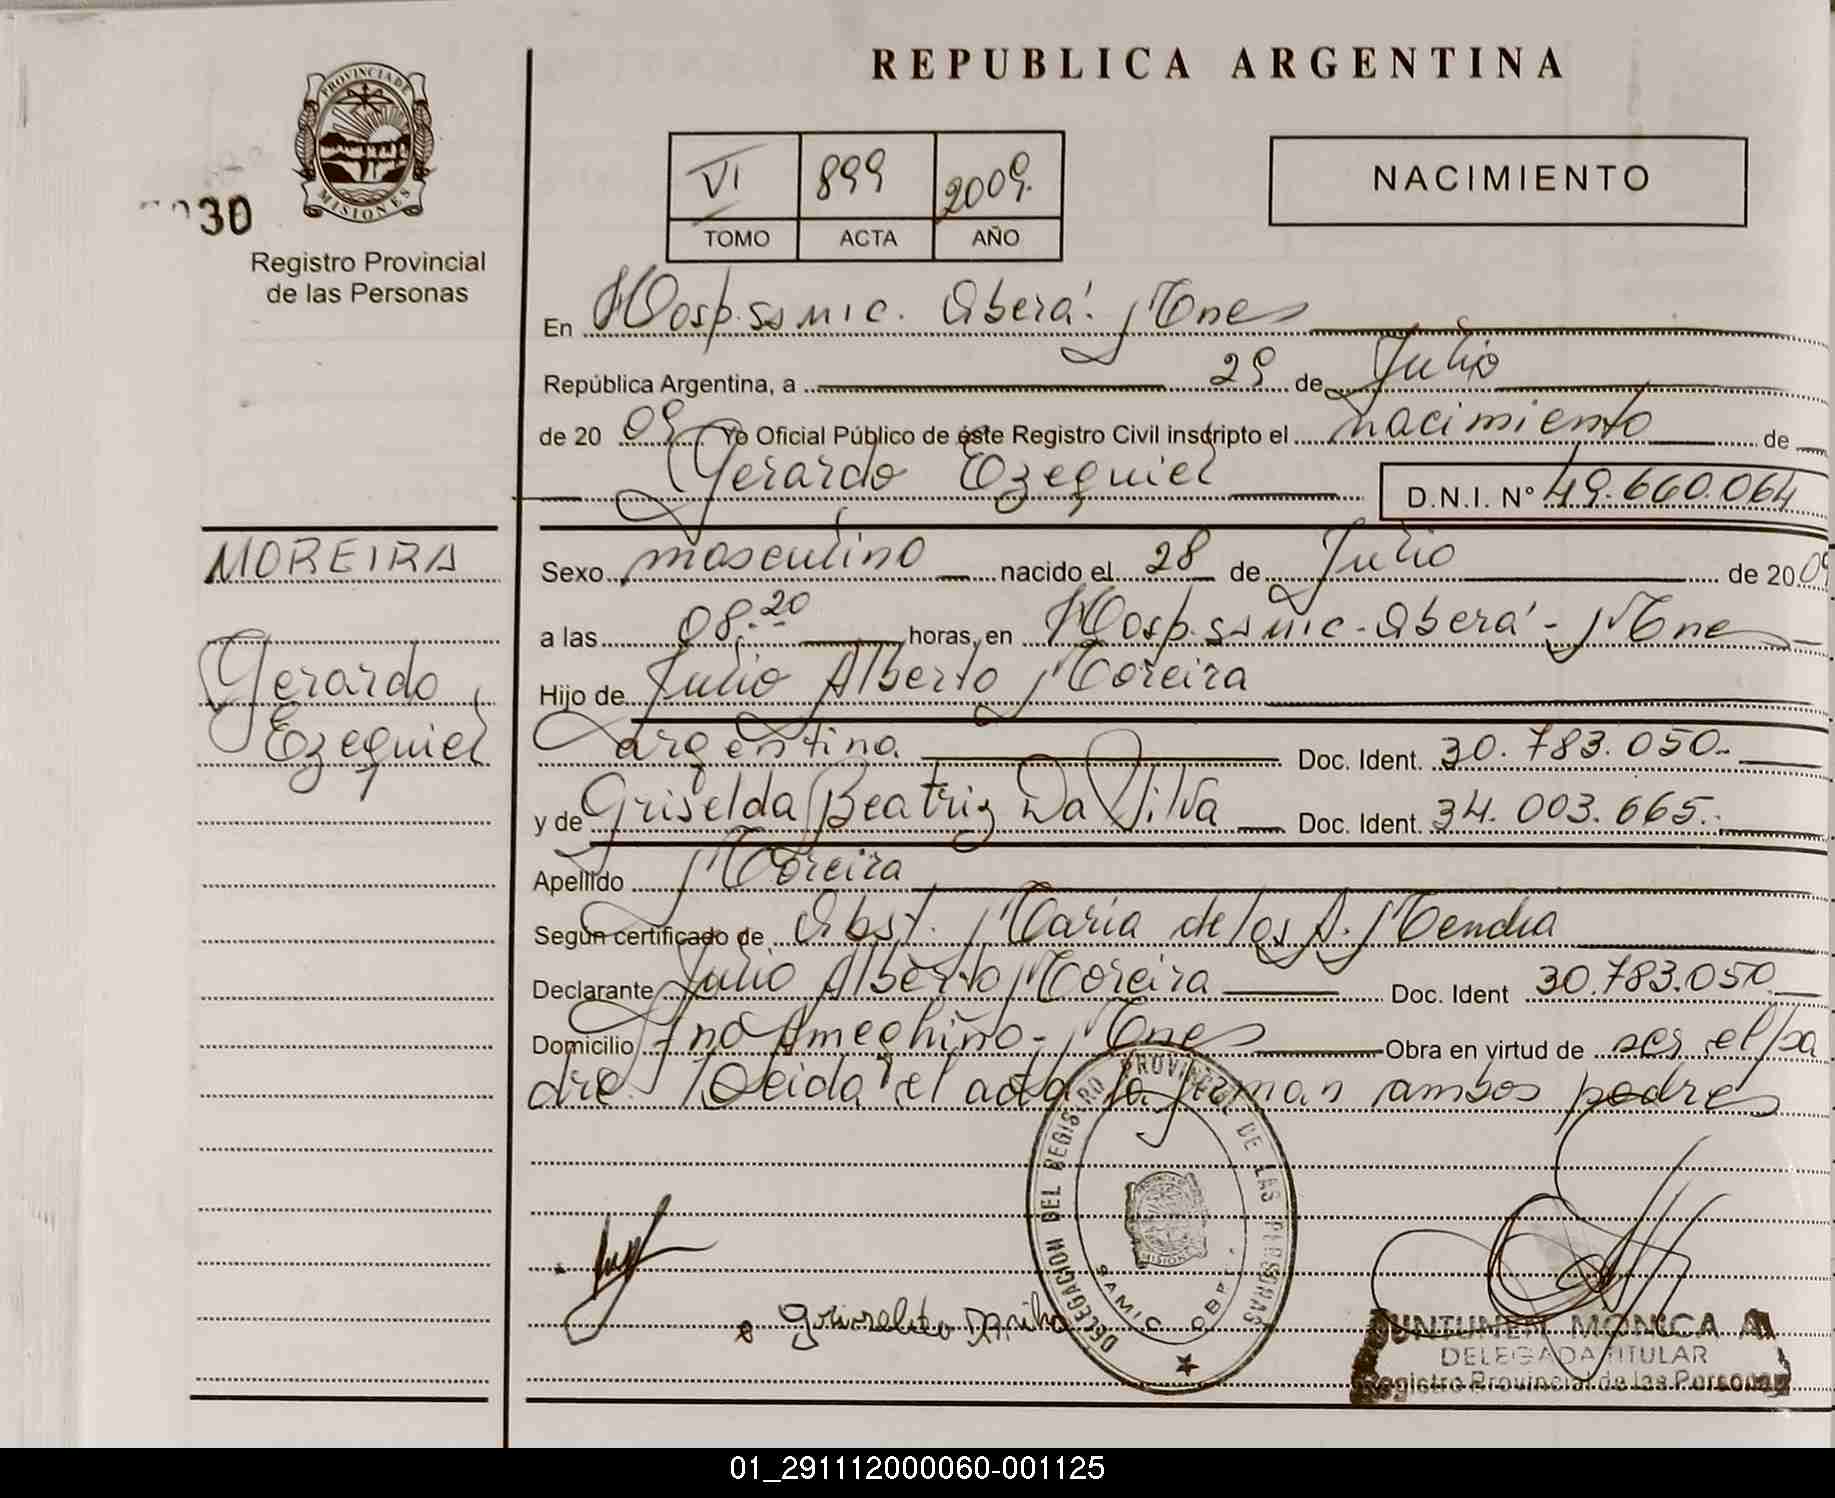 REPUBLICA ARGENTINA
PROVINCIA DE MISIONES
30
Registro Provincial
de las Personas
VI 899 2009.
TOMO ACTA AÑO
NACIMIENTO
En Hosp. ss mic. Oberá. Mnes
República Argentina, a 29 de Julio
de 20 09 Yo Oficial Público de éste Registro Civil inscripto el nacimiento de
Gerardo Ezequiel D.N.I. Nº 49.660.064
MOREIRA
Gerardo
Ezequiel
Sexo masculino nacido el 28 de Julio de 20 09
a las 08.20 horas, en Hosp. ss mic - Oberá - Mnes
Hijo de Julio Alberto Moreira
argentina Doc. Ident. 30.783.050.
y de Griselda Beatriz Da Silva Doc. Ident. 34.003.665.
Apellido Moreira
Según certificado de Obst. Maria de los A. Mendia
Declarante Julio Alberto Moreira Doc. Ident 30.783.050
Domicilio Fno Ameghino - Mnes Obra en virtud de ser el pa
dre. Leida el acta la firman ambos padres
DELEGACION DEL REGISTRO PROVINCIAL DE LAS PERSONAS
SAMIC OBERA
MONICA A
DELEGADA TITULAR
Registro Provincial de las Personas
01_291112000060-001125